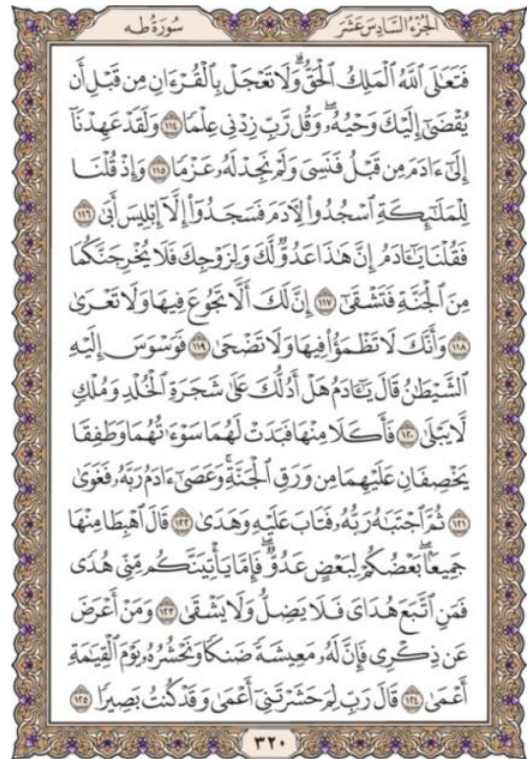 الجُزْءُ السَّادِسَ عَشَرَ سُورَةُ طه
فَتَعَٰلَى ٱللَّهُ ٱلْمَلِكُ ٱلْحَقُّ ۗ وَلَا تَعْجَلْ بِٱلْقُرْءَانِ مِن قَبْلِ أَن
يُقْضَىٰٓ إِلَيْكَ وَحْيُهُۥ ۖ وَقُل رَّبِّ زِدْنِى عِلْمًا ١١٤ وَلَقَدْ عَهِدْنَآ
إِلَىٰٓ ءَادَمَ مِن قَبْلُ فَنَسِىَ وَلَمْ نَجِدْ لَهُۥ عَزْمًا ١١٥ وَإِذْ قُلْنَا
لِلْمَلَٰٓئِكَةِ ٱسْجُدُوا۟ لِءَادَمَ فَسَجَدُوٓا۟ إِلَّآ إِبْلِيسَ أَبَىٰ ١١٦
فَقُلْنَا يَٰٓـَٔادَمُ إِنَّ هَٰذَا عَدُوٌّ لَّكَ وَلِزَوْجِكَ فَلَا يُخْرِجَنَّكُمَا
مِنَ ٱلْجَنَّةِ فَتَشْقَىٰٓ ١١٧ إِنَّ لَكَ أَلَّا تَجُوعَ فِيهَا وَلَا تَعْرَىٰ
١١٨ وَأَنَّكَ لَا تَظْمَؤُا۟ فِيهَا وَلَا تَضْحَىٰ ١١٩ فَوَسْوَسَ إِلَيْهِ
ٱلشَّيْطَٰنُ قَالَ يَٰٓـَٔادَمُ هَلْ أَدُلُّكَ عَلَىٰ شَجَرَةِ ٱلْخُلْدِ وَمُلْكٍ
لَّا يَبْلَىٰ ١٢٠ فَأَكَلَا مِنْهَا فَبَدَتْ لَهُمَا سَوْءَٰتُهُمَا وَطَفِقَا
يَخْصِفَانِ عَلَيْهِمَا مِن وَرَقِ ٱلْجَنَّةِ ۚ وَعَصَىٰٓ ءَادَمُ رَبَّهُۥ فَغَوَىٰ
١٢١ ثُمَّ ٱجْتَبَٰهُ رَبُّهُۥ فَتَابَ عَلَيْهِ وَهَدَىٰ ١٢٢ قَالَ ٱهْبِطَا مِنْهَا
جَمِيعًۢا ۖ بَعْضُكُمْ لِبَعْضٍ عَدُوٌّ ۖ فَإِمَّا يَأْتِيَنَّكُم مِّنِّى هُدًى
فَمَنِ ٱتَّبَعَ هُدَاىَ فَلَا يَضِلُّ وَلَا يَشْقَىٰ ١٢٣ وَمَنْ أَعْرَضَ
عَن ذِكْرِى فَإِنَّ لَهُۥ مَعِيشَةً ضَنكًا وَنَحْشُرُهُۥ يَوْمَ ٱلْقِيَٰمَةِ
أَعْمَىٰ ١٢٤ قَالَ رَبِّ لِمَ حَشَرْتَنِىٓ أَعْمَىٰ وَقَدْ كُنتُ بَصِيرًا ١٢٥
٣٢٠